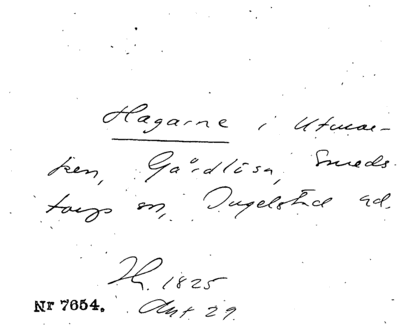 Hagarne i Utmar-
ken, Gårdlösa, Smeds-
torps sn, Ingelstad hd.
Th. 1825
Akt. 29.
Nr 7654.